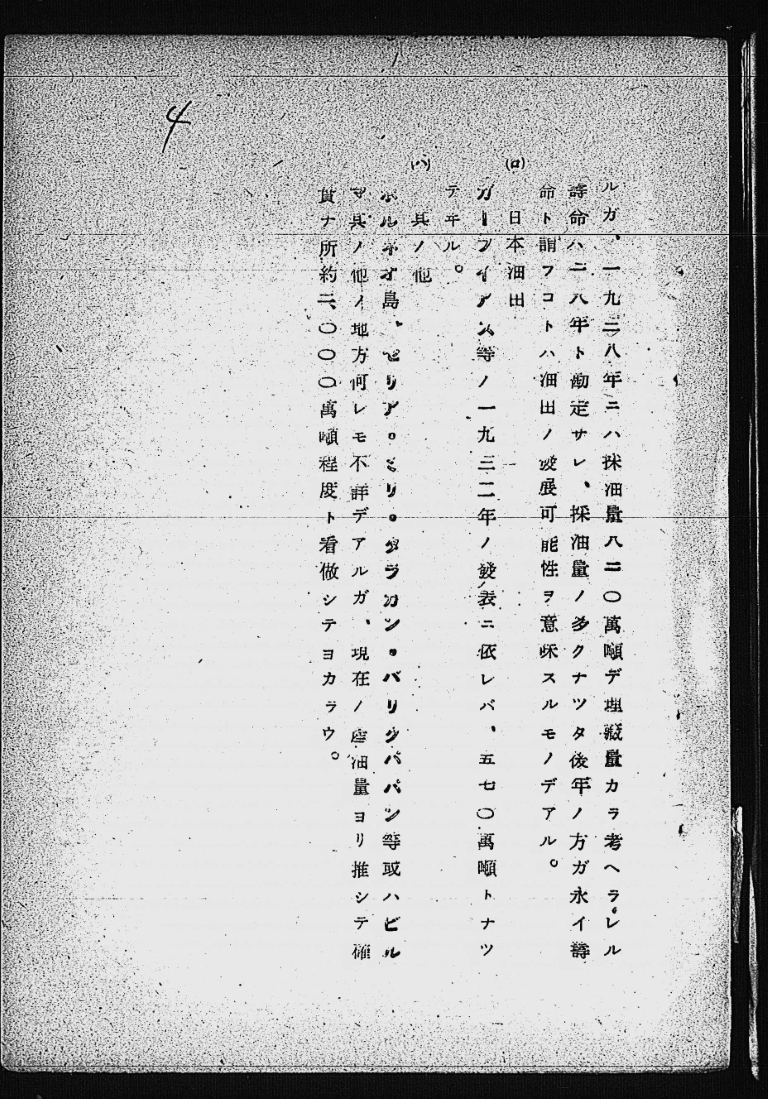 4
ルガ、一九二八年ニハ採油量八二〇萬噸デ埋藏量カラ考ヘラレル
壽命ハ二八年ト勘定サレ、採油量ノ多クナツタ後年ノ方ガ永イ壽
命ト謂フコトハ油田ノ發展可能性ヲ意味スルモノデアル。
(ロ) 日本油田
ガーフイアス等ノ一九三二年ノ發表ニ依レバ、五七〇萬噸トナツ
テヰル。
(ハ) 其ノ他
ボルネオ島、セリア。ミリ。タラカン。バリクパパン等或ハビル
マ其ノ他ノ地方何レモ不詳デアルガ、現在ノ産油量ヨリ推シテ確
實ナ所約二、〇〇〇萬噸程度ト看做シテヨカラウ。